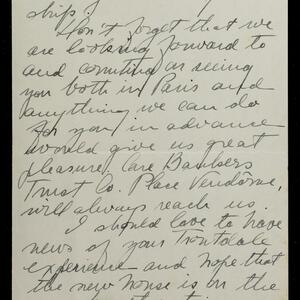 ship!
Don't forget that we
are looking forward to
and counting on seeing
you both in Paris and
anything we can do
for you in advance
would give us great
pleasure. Care Bankers
Trust Co. Place Vendôme,
will always reach us.
I should love to have
news of your Troutdale
experience and hope that
the new house is on the